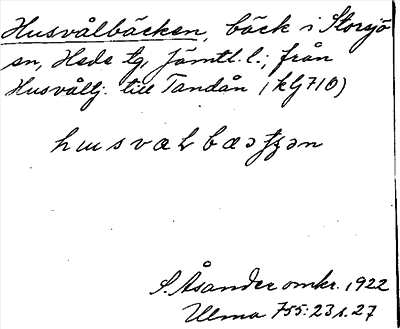 Husvålbäcken, bäck i Storsjö
sn, Hede tg, Jämtl. l.; från
Husvåltj. till Tandån (kG710)
husvælbæ
S. Åsander omkr. 1922
Ulma 755:23 s. 27